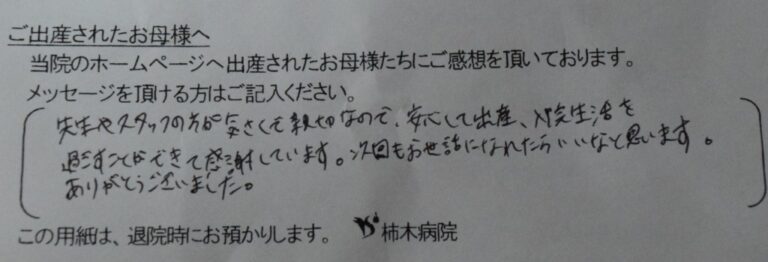 ご出産されたお母様へ
当院のホームページへ出産されたお母様たちにご感想を頂いております。
メッセージを頂ける方はご記入ください。
先生やスタッフの方が気さくで親切なので、安心して出産、入院生活を
過すことができて感謝しています。次回もお世話になれたらいいなと思います。
ありがとうございました。
この用紙は、退院時にお預かりします。 柿木病院